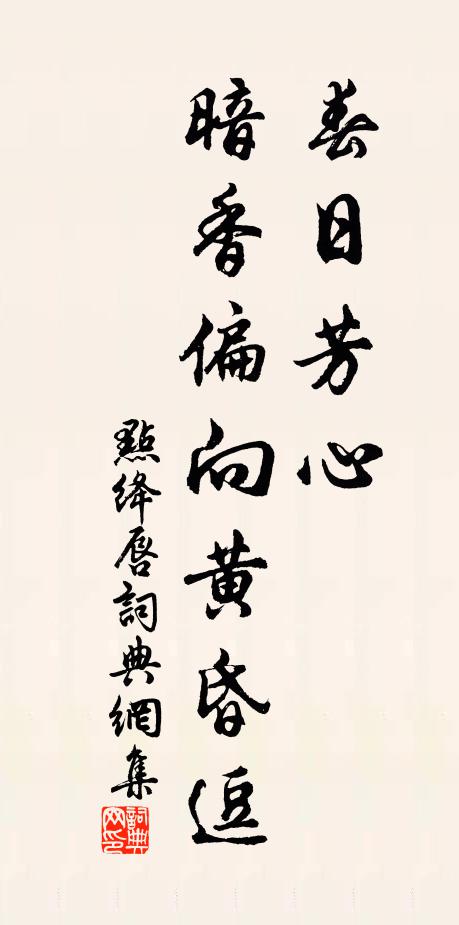 春日芳心
暗香偏向黄昏逗
點绛唇詞典網集
詞典网印